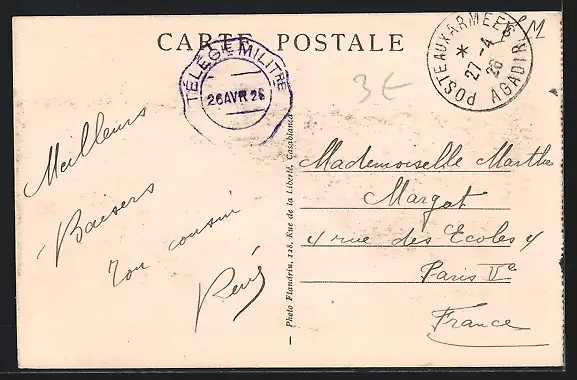 CARTE POSTALE
TÉLÉGIE MILITRE
26 AVR 26
POSTE AUX ARMEES
*
27-4
26
AGADIR
FM
3€
Meilleurs
Baisers
Ton cousin
René
— Photo Flandrin, 128, Rue de la Liberté, Casablanca
Mademoiselle Marthe
Margot
4 rue des Ecoles 4
Paris Ve
France